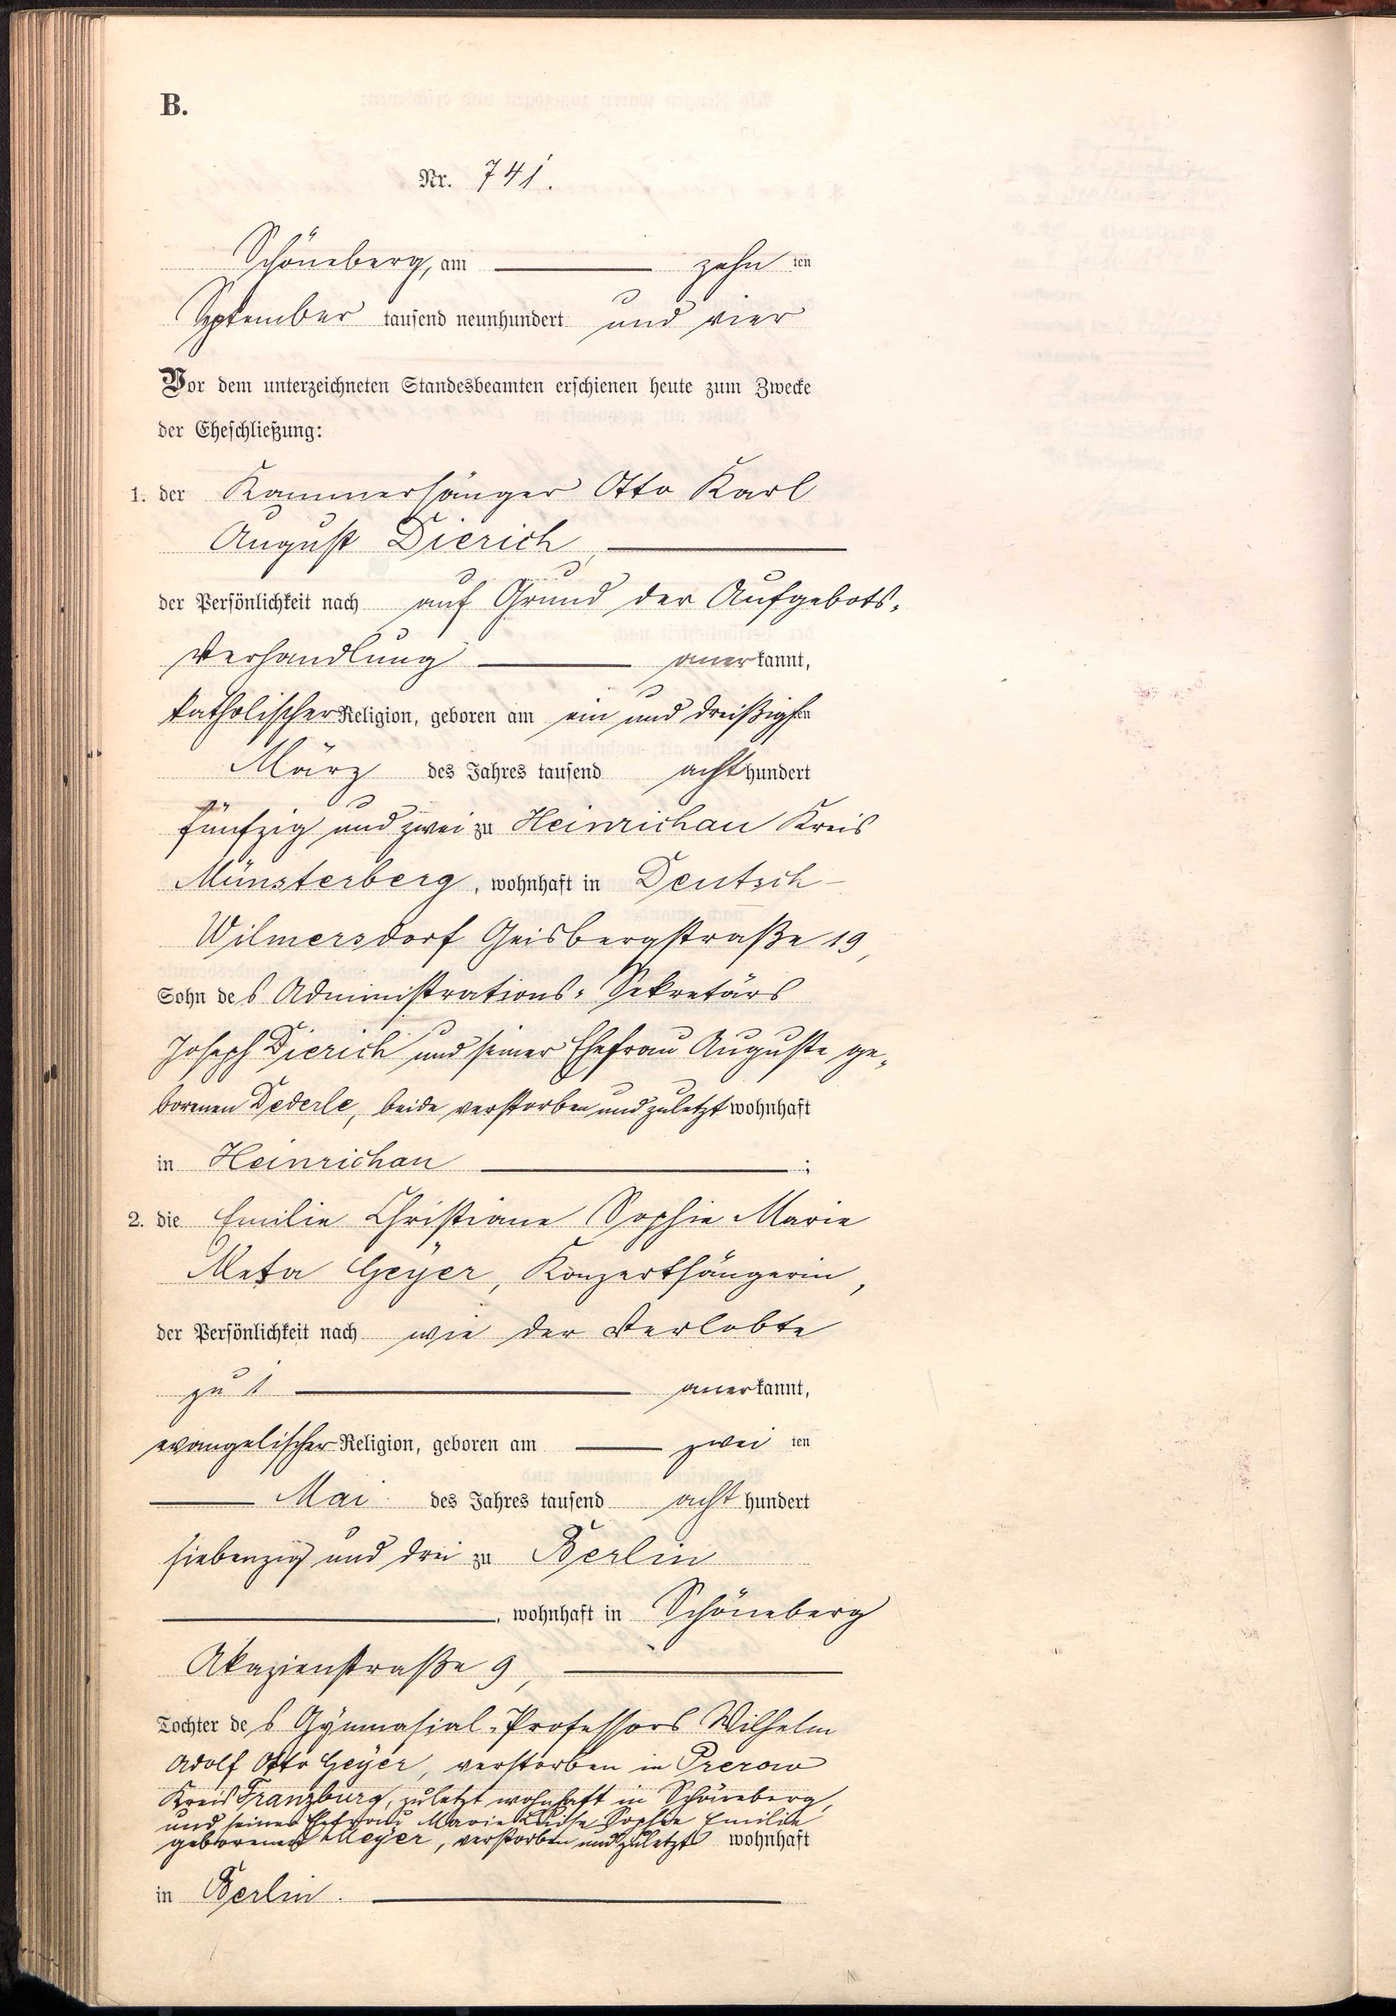 B.
Nr. 741.
Schöneberg, am zehn ten
September tausend neunhundert und vier
Vor dem unterzeichneten Standesbeamten erschienen heute zum Zwecke
der Eheschließung:
1. der Kammersänger Otto Karl
August Dierich,
der Persönlichkeit nach auf Grund der Aufgebots-
Verhandlung anerkannt,
katholischer Religion, geboren am ein und dreißigsten
März des Jahres tausend acht hundert
fünfzig und zwei zu Heinrichau Kreis
Münsterberg, wohnhaft in Deutsch-
Wilmersdorf Geisbergstraße 19,
Sohn des Administrations-Sekretärs
Joseph Dierich und seiner Ehefrau Auguste ge-
borenen Dederle, beide verstorben und zuletzt wohnhaft
in Heinrichau ;
2. die Emilie Christiane Sophie Marie
Meta Geyer, Konzertsängerin,
der Persönlichkeit nach wie der Verlobte
zu 1 anerkannt,
evangelischer Religion, geboren am zwei ten
Mai des Jahres tausend acht hundert
siebenzig und drei zu Berlin
, wohnhaft in Schöneberg
Akazienstraße 9,
Tochter des Gymnasial-Professors Wilhelm
Adolf Otto Geyer, verstorben in Prerow
Kreis Franzburg, zuletzt wohnhaft in Schöneberg,
und seiner Ehefrau Marie Luise Sophie Emilie
geborenen Meyer, verstorben und zuletzt wohnhaft
in Berlin.